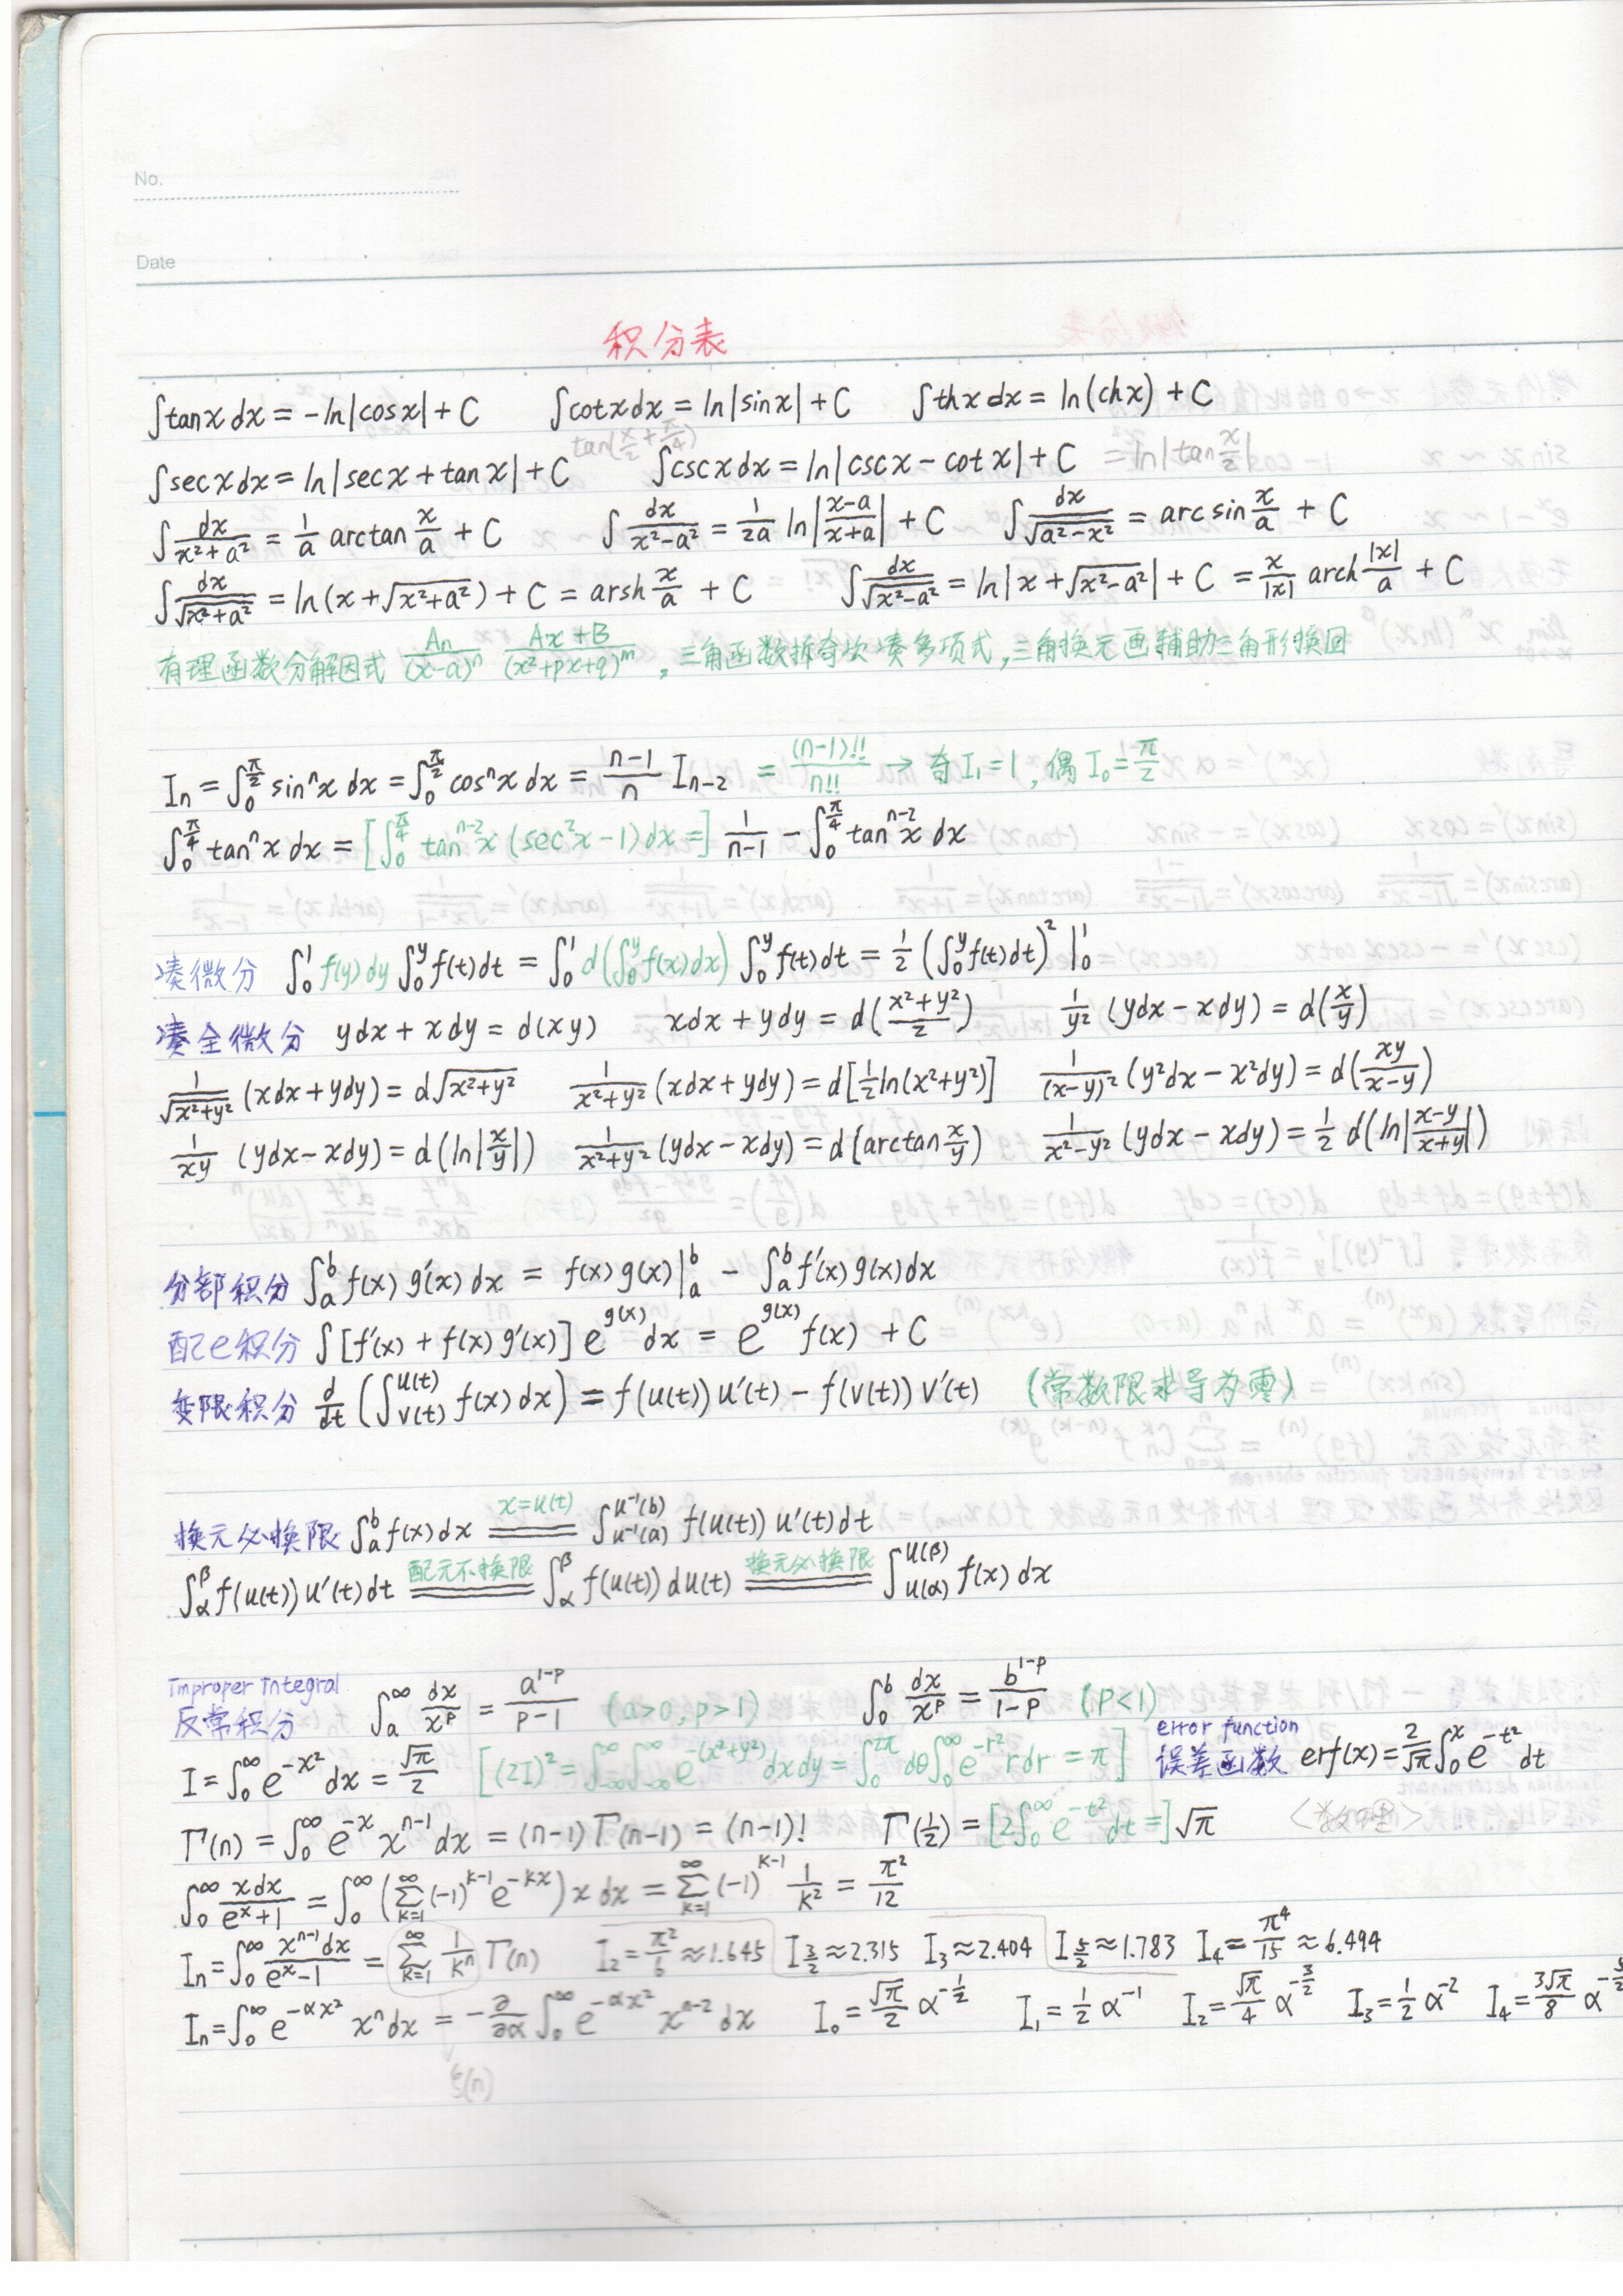 No.
Date
积分表
∫tanx dx = -ln|cosx| + C  ∫cotx dx = ln|sinx| + C  ∫thx dx = ln(chx) + C
tan(x/2 + π/4)
∫secx dx = ln|secx + tanx| + C  ∫cscx dx = ln|cscx - cotx| + C = ln|tan x/2|
∫ dx/(x²+a²) = 1/a arctan x/a + C  ∫ dx/(x²-a²) = 1/2a ln|(x-a)/(x+a)| + C  ∫ dx/√(a²-x²) = arcsin x/a + C
∫ dx/√(x²+a²) = ln(x+√(x²+a²)) + C = arsh x/a + C  ∫ dx/√(x²-a²) = ln|x+√(x²-a²)| + C = x/|x| arch |x|/a + C
有理函数分解因式 An/(x-a)ⁿ (Ax+B)/(x²+px+q)ᵐ, 三角函数拆奇次凑多项式, 三角换元画辅助三角形换回
In = ∫₀^(π/2) sinⁿx dx = ∫₀^(π/2) cosⁿx dx = (n-1)/n I_(n-2) = (n-1)!!/n!! → 奇I₁=1, 偶I₀=π/2
∫₀^(π/4) tanⁿx dx = [∫₀^(π/4) tan^(n-2)x (sec²x-1)dx =] 1/(n-1) - ∫₀^(π/4) tan^(n-2)x dx
凑微分 ∫₀¹ f(y)dy ∫₀^y f(t)dt = ∫₀¹ d(∫₀^y f(x)dx) ∫₀^y f(t)dt = 1/2 (∫₀^y f(t)dt)² |₀¹
凑全微分 ydx + xdy = d(xy)  xdx + ydy = d((x²+y²)/2)  1/y² (ydx - xdy) = d(x/y)
1/√(x²+y²) (xdx+ydy) = d√(x²+y²)  1/(x²+y²) (xdx+ydy) = d[1/2 ln(x²+y²)]  1/(x-y)² (y²dx - x²dy) = d(xy/(x-y))
1/xy (ydx-xdy) = d(ln|x/y|)  1/(x²+y²) (ydx-xdy) = d(arctan x/y)  1/(x²-y²) (ydx-xdy) = 1/2 d(ln|(x-y)/(x+y)|)
分部积分 ∫ₐᵇ f(x) g'(x) dx = f(x) g(x)|ₐᵇ - ∫ₐᵇ f'(x) g(x)dx
配e积分 ∫[f'(x) + f(x) g'(x)] e^(g(x)) dx = e^(g(x)) f(x) + C
变限积分 d/dt (∫_(v(t))^(u(t)) f(x) dx) = f(u(t)) u'(t) - f(v(t)) v'(t) (常数限求导为零)
换元必换限 ∫ₐᵇ f(x) dx =(x=u(t))= ∫_(u⁻¹(a))^(u⁻¹(b)) f(u(t)) u'(t) dt
∫_α^β f(u(t)) u'(t) dt =(配元不换限)= ∫_α^β f(u(t)) du(t) =(换元必换限)= ∫_(u(α))^(u(β)) f(x) dx
Improper Integral
反常积分 ∫ₐ^∞ dx/x^p = a^(1-p)/(p-1) (a>0, p>1)  ∫₀ᵇ dx/x^p = b^(1-p)/(1-p) (p<1)
error function
I = ∫₀^∞ e^(-x²) dx = √π/2 [(2I)² = ∫_(-∞)^∞ ∫_(-∞)^∞ e^(-(x²+y²)) dxdy = ∫₀^(2π) dθ ∫₀^∞ e^(-r²) rdr = π] 误差函数 erf(x) = 2/√π ∫₀^x e^(-t²) dt
Γ(n) = ∫₀^∞ e^(-x) x^(n-1) dx = (n-1) Γ(n-1) = (n-1)!  Γ(1/2) = [2∫₀^∞ e^(-t²) dt =] √π <数理>
∫₀^∞ xdx/(e^x+1) = ∫₀^∞ (∑_(k=1)^∞ (-1)^(k-1) e^(-kx)) x dx = ∑_(k=1)^∞ (-1)^(k-1) 1/k² = π²/12
In = ∫₀^∞ x^(n-1)dx/(e^x-1) = ∑_(k=1)^∞ 1/kⁿ Γ(n)  I₂ = π²/6 ≈ 1.645  I_(3/2) ≈ 2.315  I₃ ≈ 2.404  I_(5/2) ≈ 1.783  I₄ = π⁴/15 ≈ 6.494
In = ∫₀^∞ e^(-αx²) xⁿ dx = -∂/∂α ∫₀^∞ e^(-αx²) x^(n-2) dx  I₀ = √π/2 α^(-1/2)  I₁ = 1/2 α⁻¹  I₂ = √π/4 α^(-3/2)  I₃ = 1/2 α⁻²  I₄ = 3√π/8 α^(-5/2)
ξ(n)